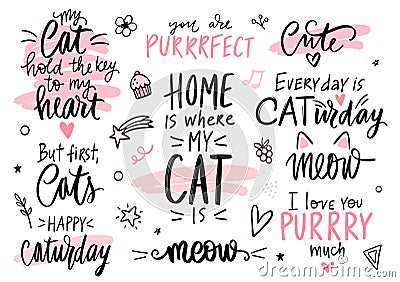 my
Cat
hold the key
to my
heart
But first,
Cats
HAPPY
Caturday
you are
PURRRFECT
HOME
is where
MY
CAT
IS
meow
Cute
EVERY day is
CATurday
meow
I love you
PURRRY
much
dreamstime.com